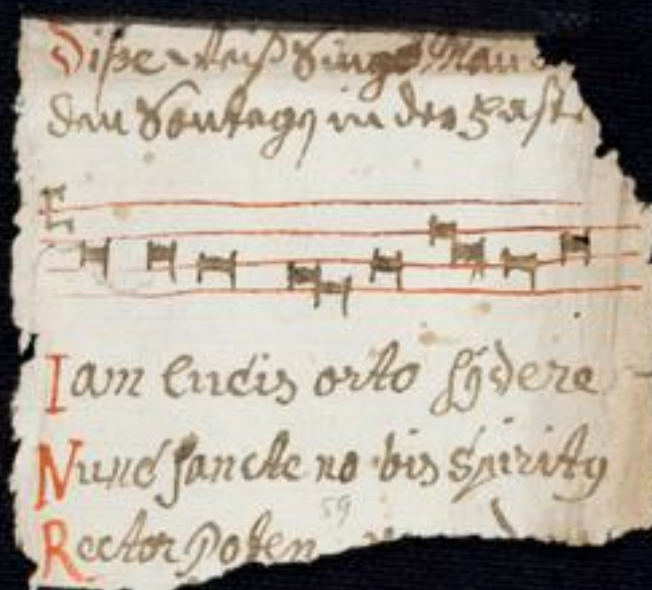 Diße weiß Singt Man
den Sontag in der Faste
Iam lucis orto sÿdere
Nunc sancte no bis Spirity
59
Rector Poten